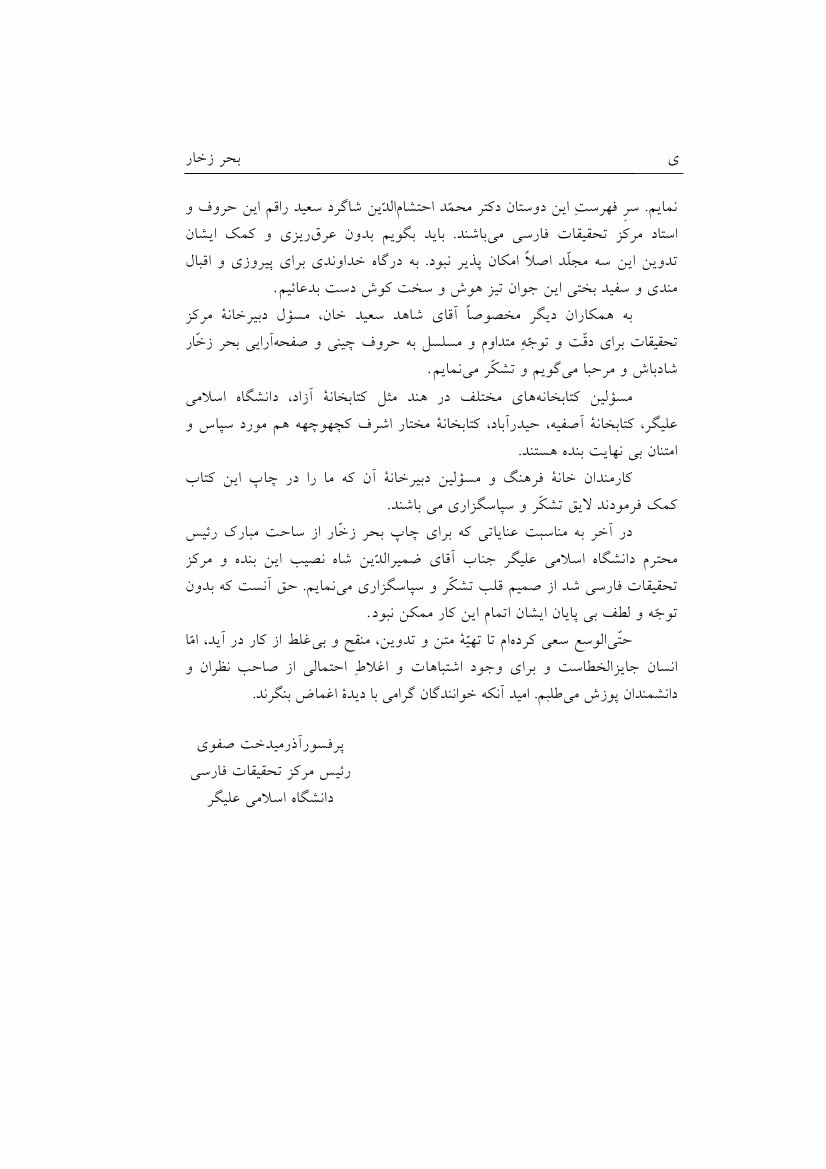 ی بحر زخار
نمایم. سرِ فهرستِ این دوستان دکتر محمّد احتشام‌الدّین شاگرد سعید راقم این حروف و
استاد مرکز تحقیقات فارسی می‌باشند. باید بگویم بدون عرق‌ریزی و کمک ایشان
تدوین این سه مجلّد اصلاً امکان پذیر نبود. به درگاه خداوندی برای پیروزی و اقبال
مندی و سفید بختی این جوان تیز هوش و سخت کوش دست بدعائیم.
به همکاران دیگر مخصوصاً آقای شاهد سعید خان، مسؤل دبیرخانهٔ مرکز
تحقیقات برای دقّت و توجّهِ متداوم و مسلسل به حروف چینی و صفحه‌آرایی بحر زخّار
شادباش و مرحبا می‌گویم و تشکّر می‌نمایم.
مسؤلین کتابخانه‌های مختلف در هند مثل کتابخانهٔ آزاد، دانشگاه اسلامی
علیگر، کتابخانهٔ آصفیه، حیدرآباد، کتابخانهٔ مختار اشرف کچهوچهه هم مورد سپاس و
امتنان بی نهایت بنده هستند.
کارمندان خانهٔ فرهنگ و مسؤلین دبیرخانهٔ آن که ما را در چاپ این کتاب
کمک فرمودند لایق تشکّر و سپاسگزاری می باشند.
در آخر به مناسبت عنایاتی که برای چاپ بحر زخّار از ساحت مبارک رئیس
محترم دانشگاه اسلامی علیگر جناب آقای ضمیرالدّین شاه نصیب این بنده و مرکز
تحقیقات فارسی شد از صمیم قلب تشکّر و سپاسگزاری می‌نمایم. حق آنست که بدون
توجّه و لطف بی پایان ایشان اتمام این کار ممکن نبود.
حتّی‌الوسع سعی کرده‌ام تا تهیّهٔ متن و تدوین، منقح و بی‌غلط از کار در آید، امّا
انسان جایزالخطاست و برای وجود اشتباهات و اغلاطِ احتمالی از صاحب نظران و
دانشمندان پوزش می‌طلبم. امید آنکه خوانندگان گرامی با دیدهٔ اغماض بنگرند.
پرفسورآذرمیدخت صفوی
رئیس مرکز تحقیقات فارسی
دانشگاه اسلامی علیگر